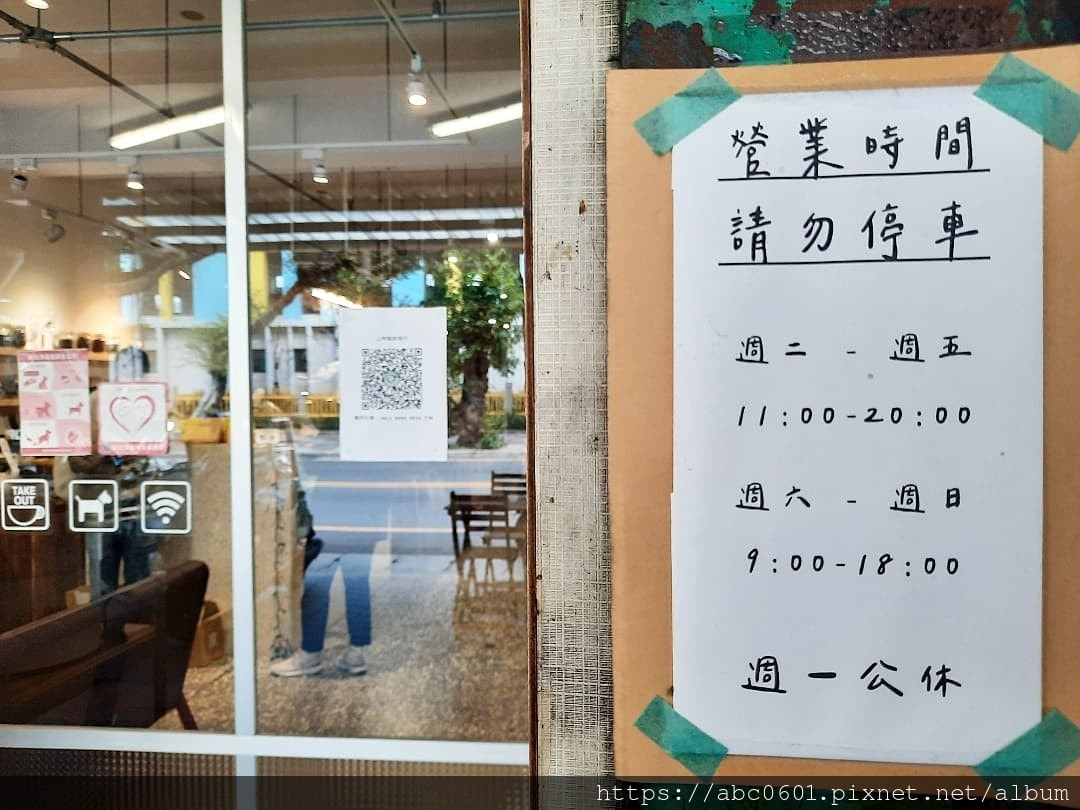 營業時間
請勿停車
週二 - 週五
11:00-20:00
週六 - 週日
9:00-18:00
週一公休
TAKE
OUT
https://abc0601.pixnet.net/album